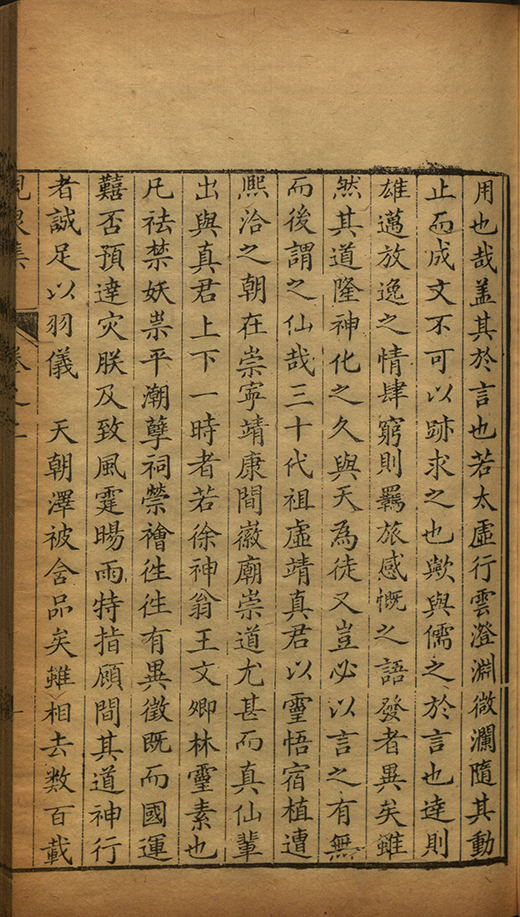 用也哉盖其於言也若太虛行雲澄淵微瀾隨其動
止而成文不可以跡求之也歟與儒之於言也達則
雄邁放逸之情肆窮則羈旅感慨之語發者異矣雖
然其道隆神化之久與天為徒又豈必以言之有無
而後謂之仙哉三十代祖虛靖真君以靈悟宿植遭
熈洽之朝在崇寧靖康間徽廟崇道尤甚而真仙輩
出與真君上下一時者若徐神翁王文卿林靈素也
凡祛禁妖祟平潮孽祠禜禬徃徃有異徵既而國運
囏否預達灾朕及致風霆暘雨特指顧間其道神行
者誠足以羽儀　天朝澤被含品矣雖相去数百載
峴泉集　卷之二